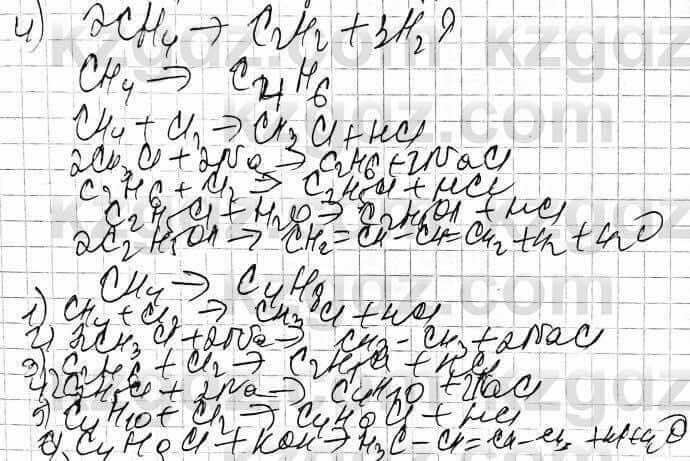 4) 2CH4 → C2H2 + 3H2
CH4 → C4H6
CH4 + Cl2 → CH3Cl + HCl
2CH3Cl + 2Na → C2H6 + 2NaCl
C2H6 + Cl2 → C2H5Cl + HCl
C2H5Cl + H2O → C2H5OH + HCl
2C2H5OH → CH2=CH-CH=CH2 + H2 + H2O
CH4 → C4H8
1) CH4 + Cl2 → CH3Cl + HCl
2) 2CH3Cl + 2Na → CH3-CH3 + 2NaCl
3) C2H6 + Cl2 → C2H5Cl + HCl
4) 2C2H5Cl + 2Na → C4H10 + 2NaCl
5) C4H10 + Cl2 → C4H9Cl + HCl
6) C4H9Cl + KOH → H3C-CH=CH-CH3